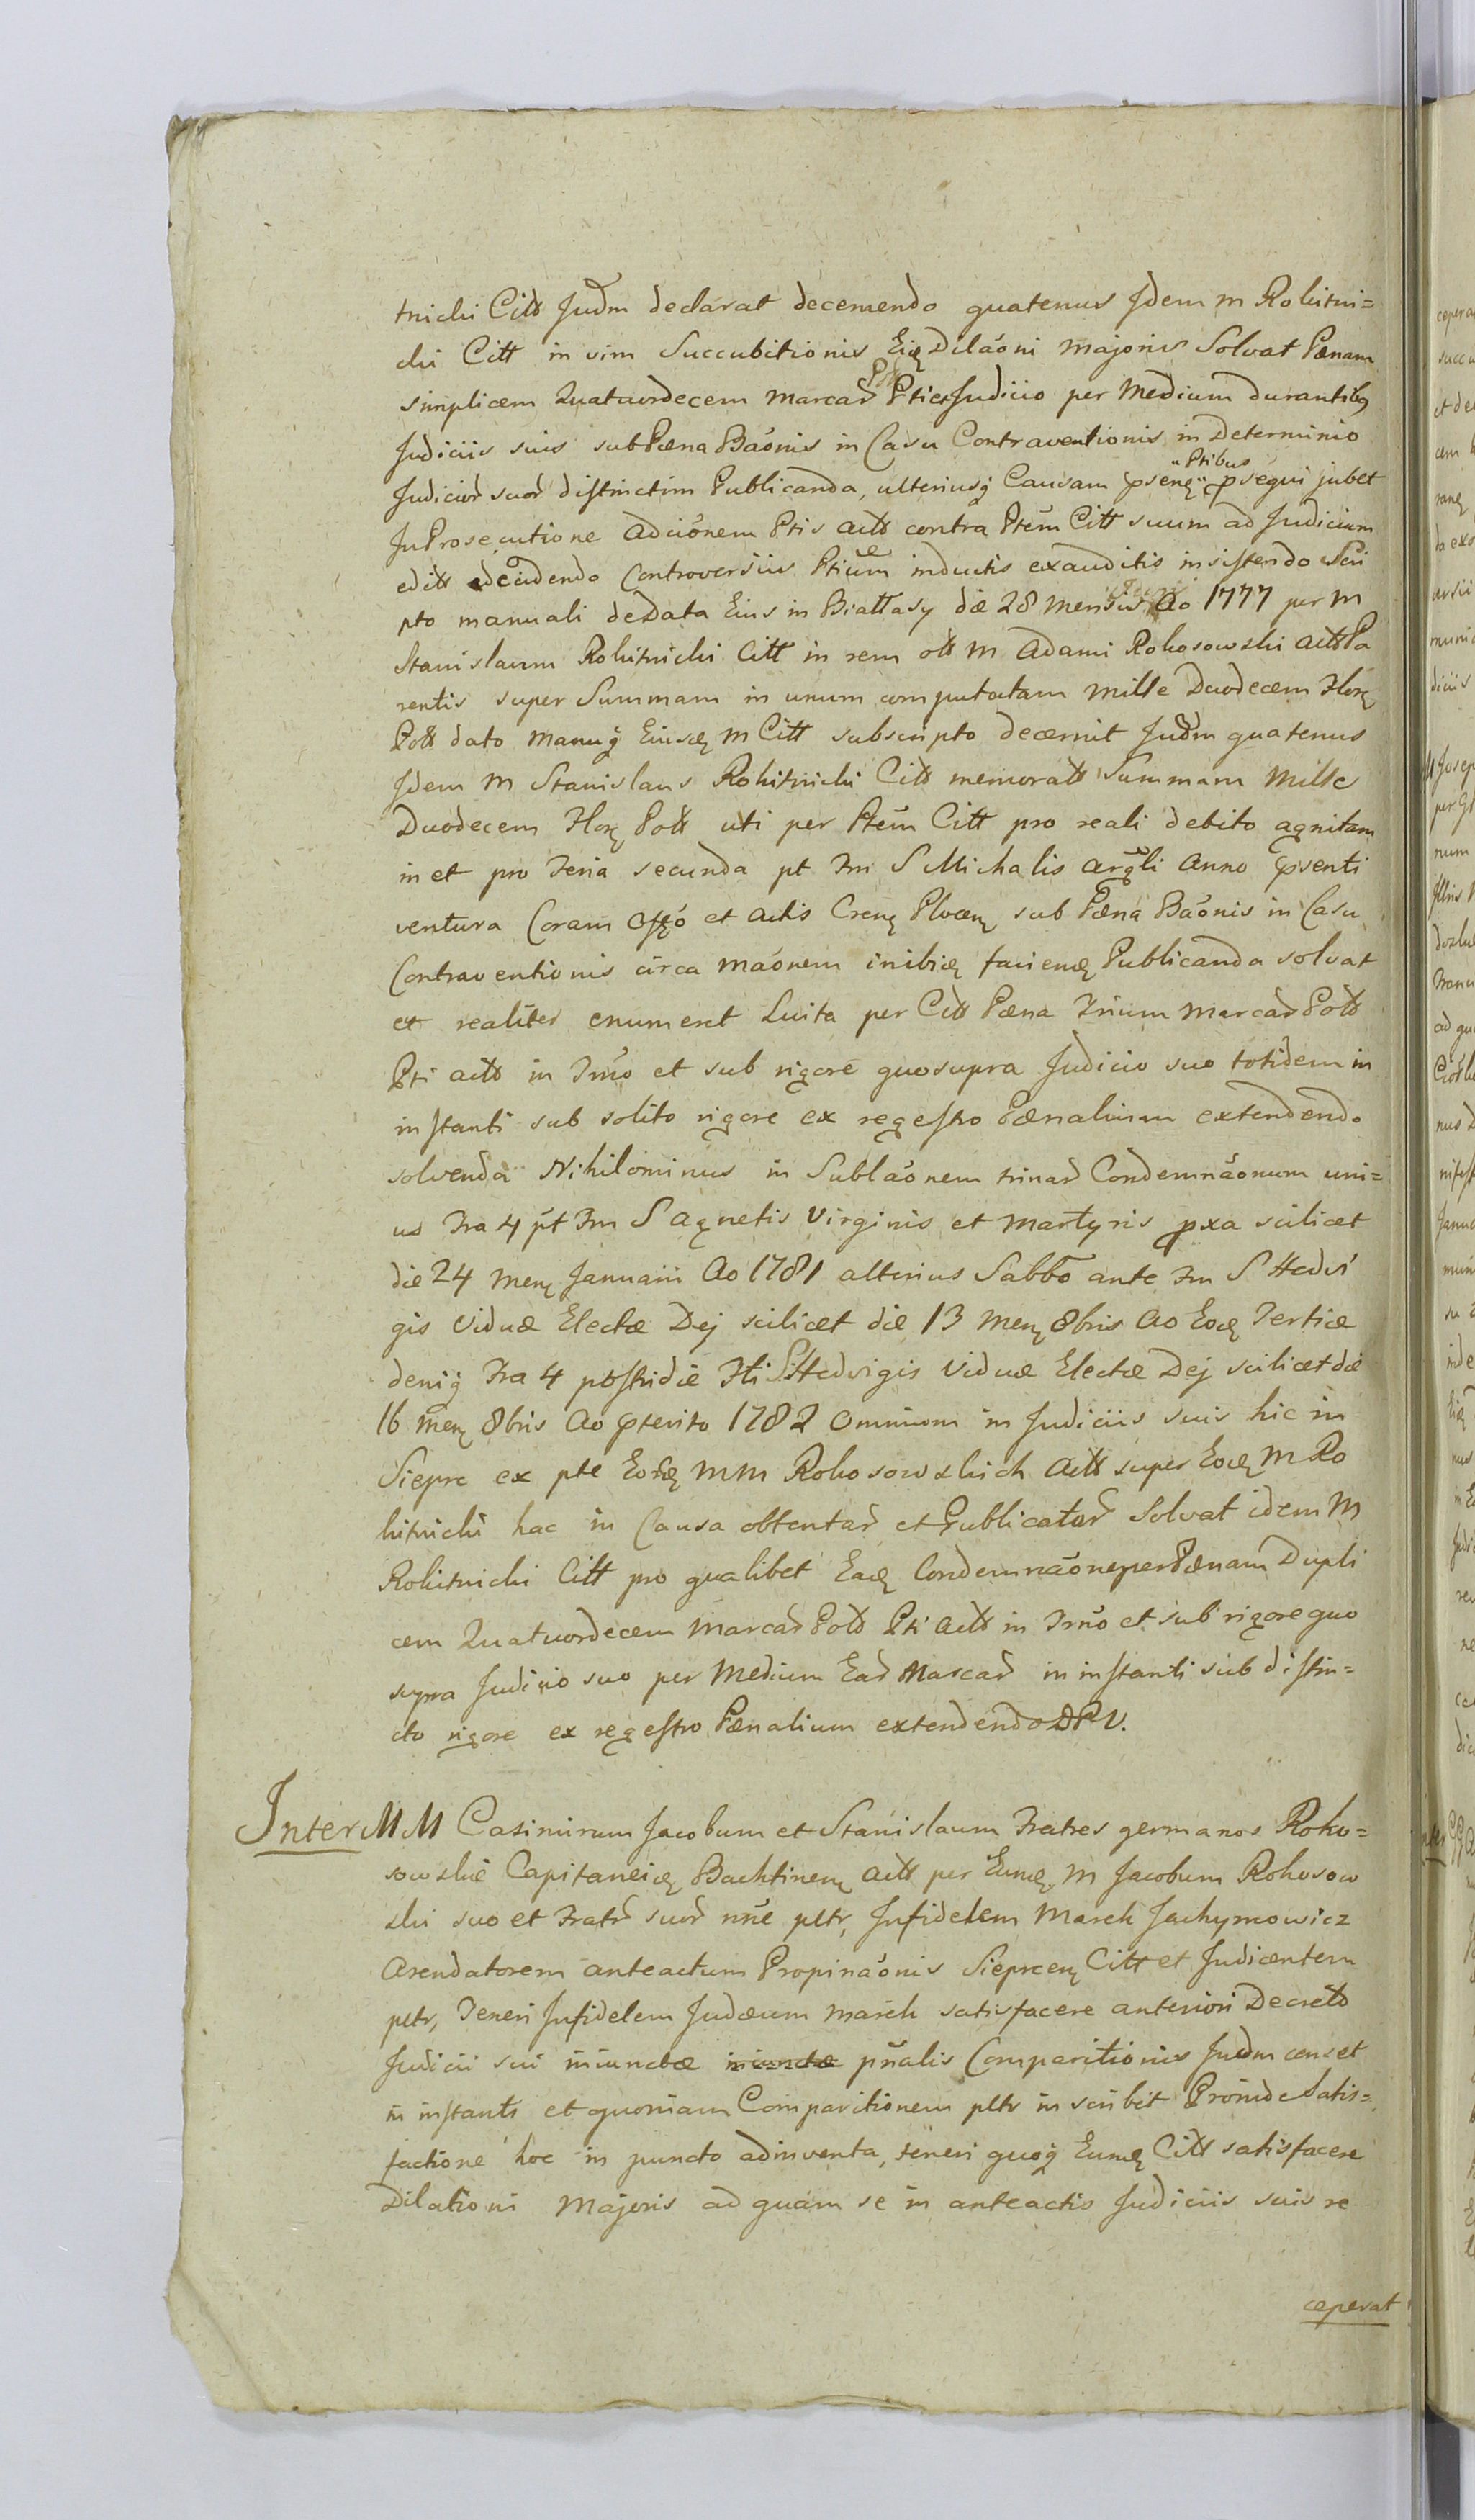 tnicki Citt Judm declarat decernendo quatenus Idem M Rokitni=
cki Citt in vim Succubitionis Ejq Dilaoni Majoris Solvat Pænam
simplicem Quatuordecem Marcar Pti et Judicio per Medium durantibq
Judiciis suis sub Pæna Baonis in Casu Contraventionis in Determinio
Judicior suor distinctim Publicanda, ulteriusq Causam psenq Ptibus psequi jubet
In Prosecutione adcionem Ptis actt contra Ptem Citt suum ad Judicium
editt decidendo Controversiis Ptium inductis exauditis insistendo Scri
pto manuali de Data Ejus in Biattasy die 28 Mensis Ao 1777 per M
Stanislaum Rokitnicki Citt in rem ott M Adami Rokosowski actt Pa
rentis super Summam in unum computatam Mille Duodecem Florq
Pott dato Manuq Ejusdq M Citt subscripto decernit Judm quatenus
Idem M Stanislaus Rokitnicki Citt memoratt Summam Mille
Duodecem Florq Pott uti per Ptem Citt pro reali debito agnitam
in et pro Feria secunda pt Fm S Michalis Argli Anno psenti
ventura Coram Offo et Actis Crenq Plocenq sub Pæna Baonis in Casu
Contraventionis circa Maonem inibiq faciendq Publicanda solvat
et realiter enumeret Luita per Citt Pæna Trium Marcar Pott
Pti actt in Trmo et sub rigore quo supra Judicio suo totidem in
instanti sub solito rigore ex regestro Pænalium extendendo
solvenda Nihilominus in Sublaonem trinar Condemnaonum uni=
us Fra 4 pt Fm S Agnetis Virginis et Martyris pxa scilicet
die 24 Menq Januarii Ao 1781 alterius Sabbo ante Fm S Hedvi
gis Viduæ Electæ Dej scilicet die 13 Menq 8bris Ao Eodq Tertiæ
deniq Fra 4 postridie Fti S Hedvigis Viduæ Electæ Dej scilicet die
16 Menq 8bris Ao pterito 1782 Omnium in Judiciis suis hic in
Siepre ex pte Eordq MM Rokosowskich actt super Eodq M Ro
kitnicki hac in Causa obtentar et Publicatar Solvat idem M
Rokitnicki Citt pro qualibet Eadq Condemnaone per Pænam Dupli
cem Quatuordecem Marcar Pott Pti actt in Trmo et sub rigore quo
supra Judicio suo per Medium Ear Marcar in instanti sub distin=
cto rigore ex regestro Pænalium extendendo DPV.
Inter MM Casimirum Jacobum et Stanislaum Fratres germanos Roko=
sowskie Capitaneidq Bachtinenq actt per Eundq M Jacobum Rokosow
ski suo et Fratr suor nne pltr, Infidelem Marek Jachymowicz
Arendatorem anteactum Propinaonis Sieprcenq Citt et Judicentem
pltr, Teneri Infidelem Judæum Marek satisfacere anteriori Decreto
Judicii sui iniunctæ iniunctæ pnalis Comparitionis Judm censet
in instanti et quoniam Comparitionem pltr inscribit Proinde Satis=
factione hoc in puncto adinventa, teneri quoq Eundq Citt satisfacere
Dilationi Majoris ad quam se in anteactis Judiciis suis re
ceperat